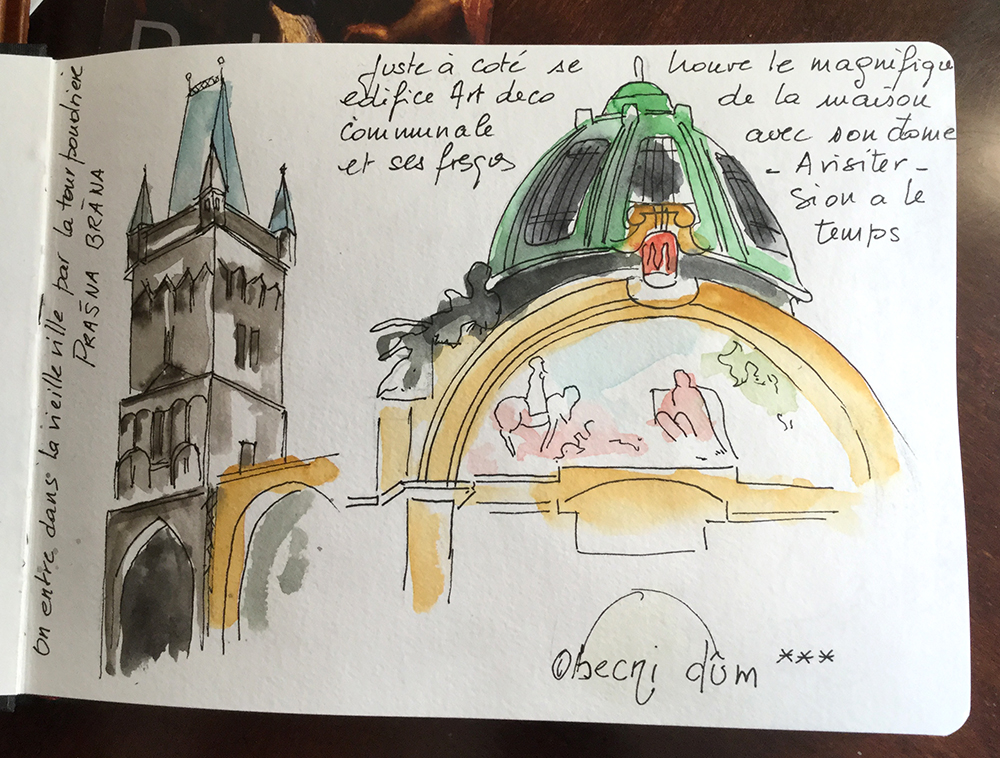 On entre dans la vieille ville par la tour poudriere
PRAŠNA BRÀNA
Juste à coté se trouve le magnifique
edifice Art deco de la maison
communale avec son dome
et ses fresqs - A visiter -
Si on a le
temps
Obecni dûm ***